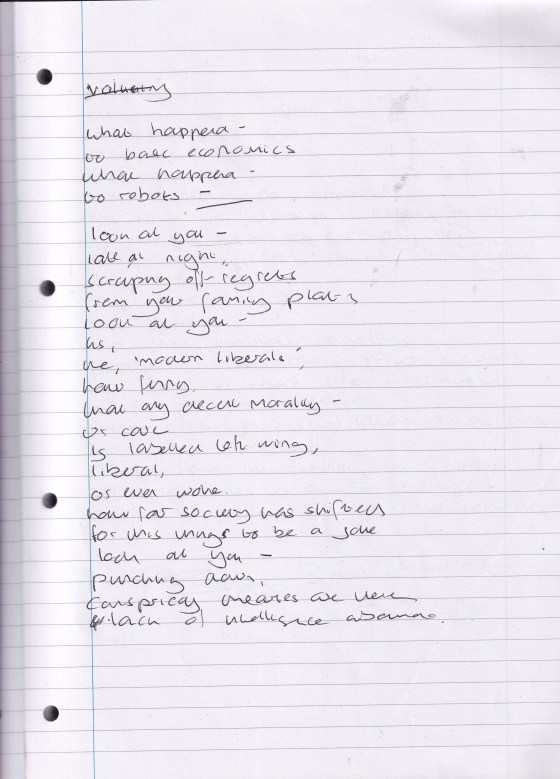 what happend -
to basic economics
what happend -
to robots -
look at you -
late at night,
scraping off regrets
from your family plates
look at you -
us,
we, 'modern liberals',
how funny.
that any decent morality -
or care
is labelled left wing,
liberal,
or even woke.
how far society has shifted
for this things to be a joke
look at you -
punching down,
conspiricy theories are here
lack of intelligence